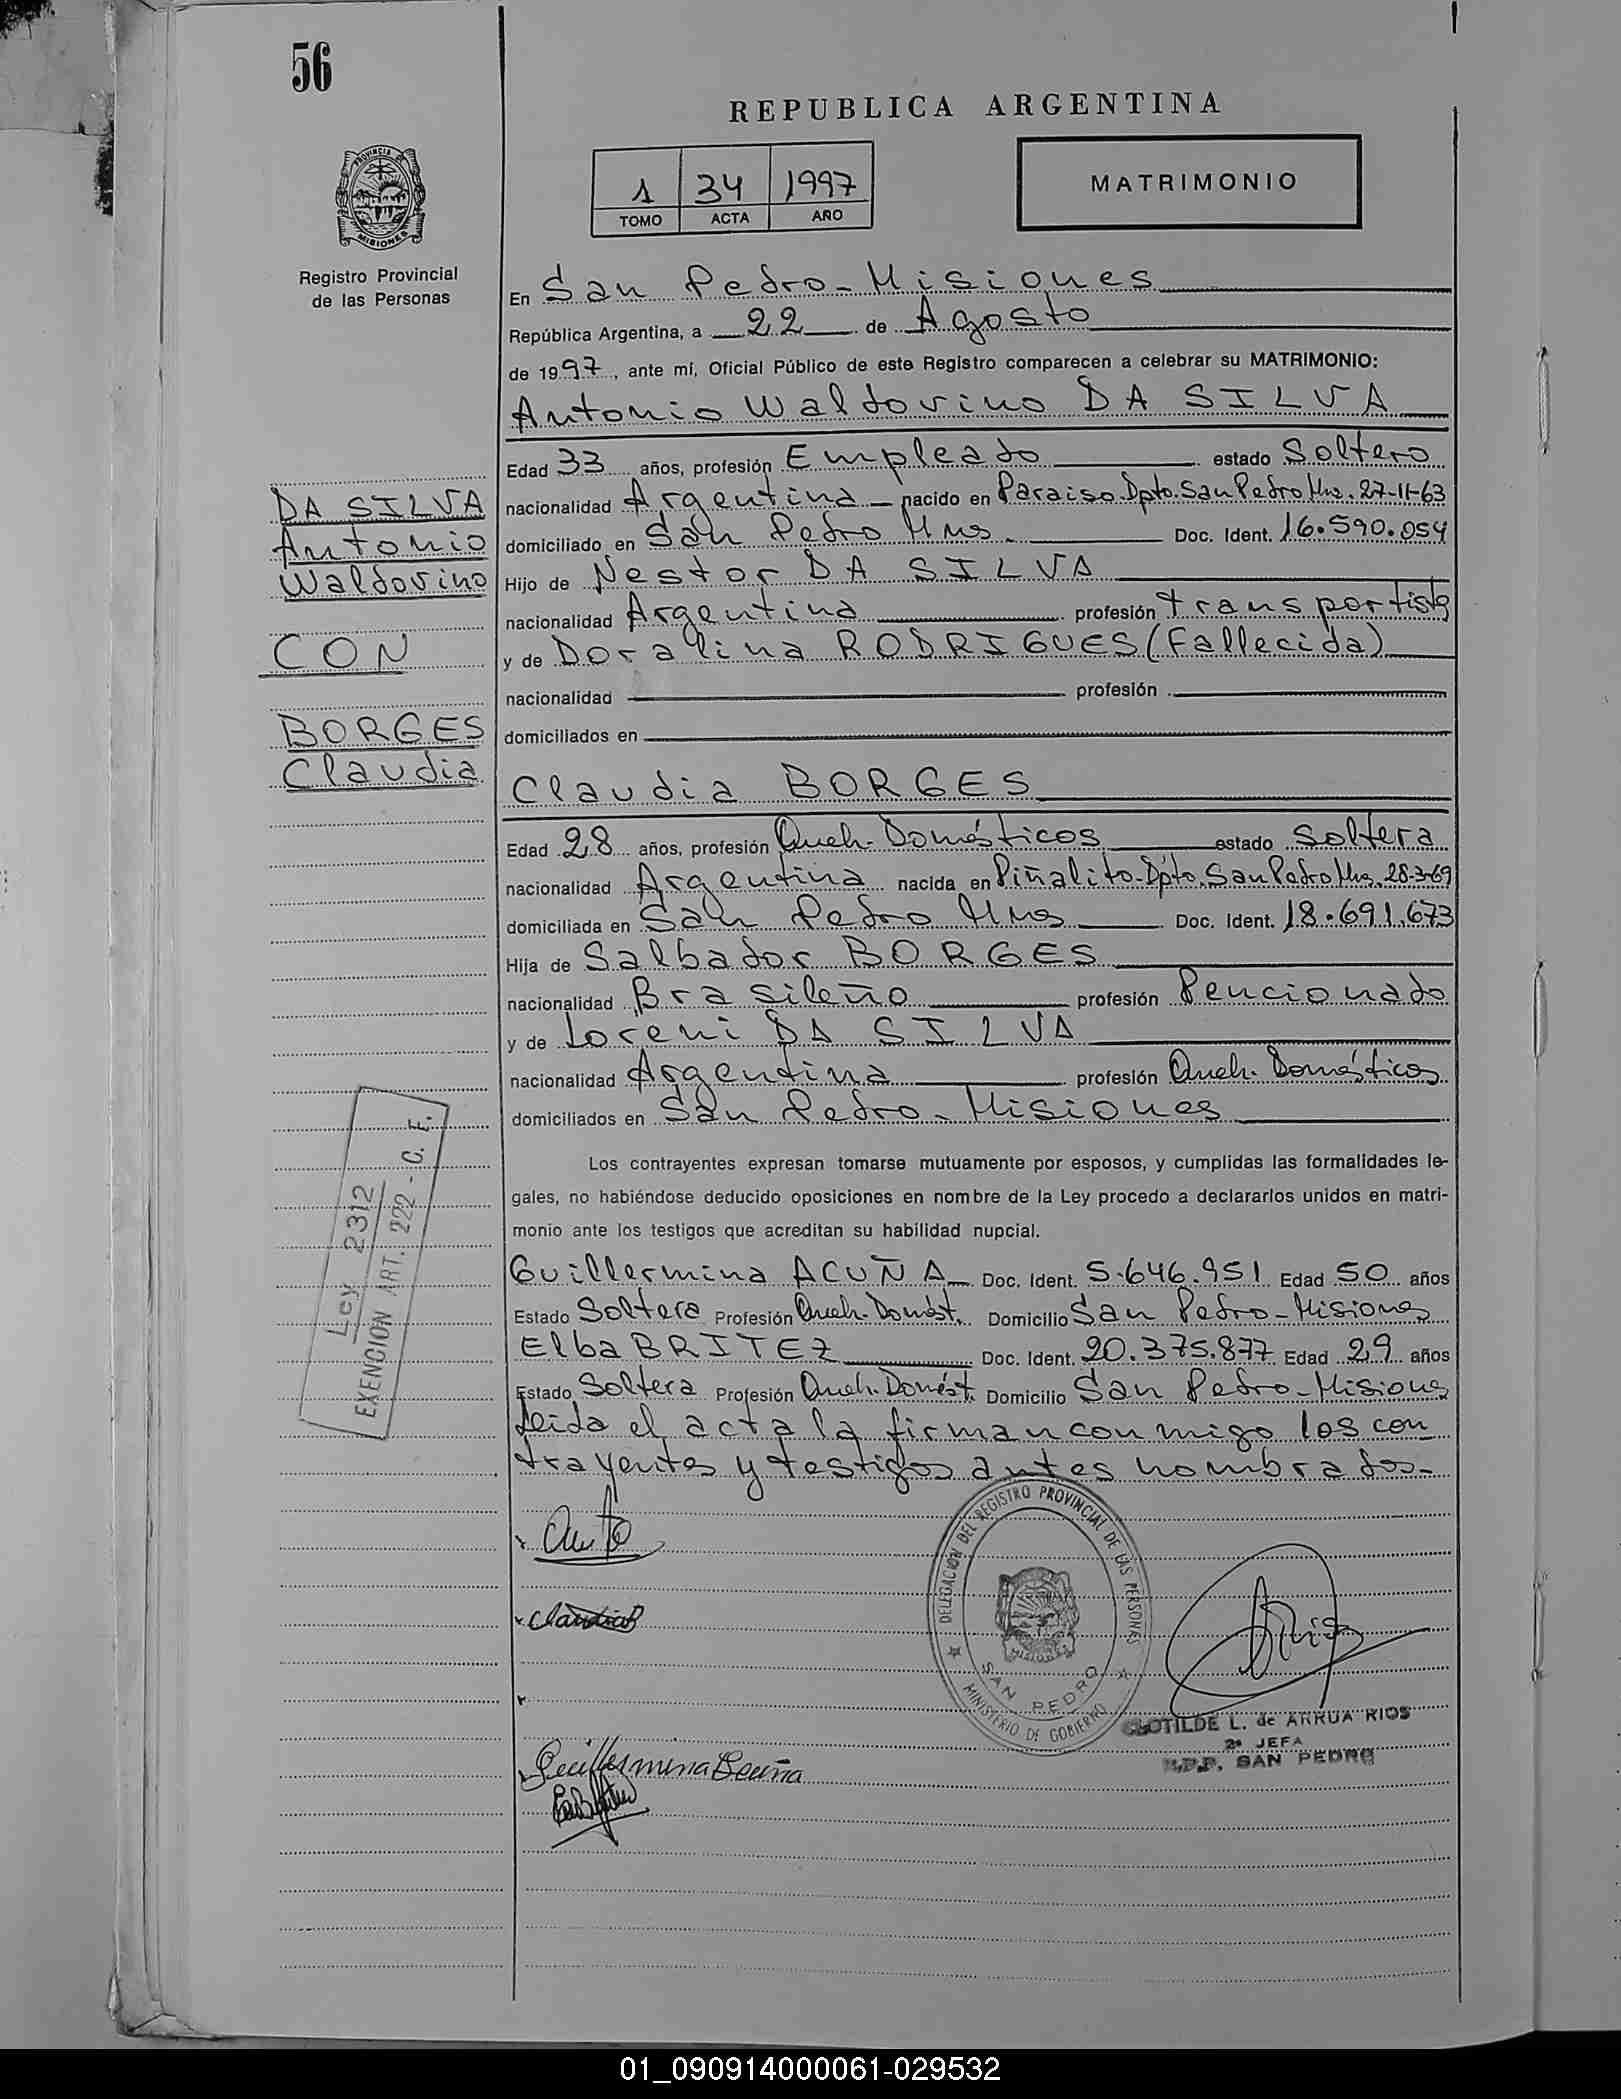 56
REPUBLICA ARGENTINA
1 34 1997
TOMO ACTA AÑO
MATRIMONIO
PROVINCIA DE
MISIONES
Registro Provincial
de las Personas
En San Pedro - Misiones
República Argentina, a 22 de Agosto
de 1997, ante mí, Oficial Público de este Registro comparecen a celebrar su MATRIMONIO:
Antonio Waldovino DA SILVA
Edad 33 años, profesión Empleado estado Soltero
DA SILVA
Antonio
Waldovino
CON
BORGES
Claudia
nacionalidad Argentina - nacido en Paraiso Dpto. San Pedro Mns. 27-11-63
domiciliado en San Pedro Mnes. Doc. Ident. 16.590.054
Hijo de Nestor DA SILVA
nacionalidad Argentina profesión transportista
y de Doralina RODRIGUES (Fallecida)
nacionalidad profesión
domiciliados en
Claudia BORGES
Edad 28 años, profesión Queh. Domésticos estado Soltera
nacionalidad Argentina nacida en Piñalito - Dpto. San Pedro Mns. 28-3-69
domiciliada en San Pedro Mnes Doc. Ident. 18.691.673
Hija de Salbador BORGES
nacionalidad Brasileño profesión Pencionado
y de Loreni DA SILVA
nacionalidad Argentina profesión Queh. Domésticos
domiciliados en San Pedro - Misiones
Los contrayentes expresan tomarse mutuamente por esposos, y cumplidas las formalidades le-
gales, no habiéndose deducido oposiciones en nombre de la Ley procedo a declararlos unidos en matri-
monio ante los testigos que acreditan su habilidad nupcial.
Ley 2312
EXENCION ART. 222 - C. F.
Guillermina ACUÑA - Doc. Ident. 5.646.951 Edad 50 años
Estado Soltera Profesión Queh. Domést. Domicilio San Pedro - Misiones
Elba BRITEZ Doc. Ident. 20.375.877 Edad 29 años
Estado Soltera Profesión Queh. Domést. Domicilio San Pedro - Misiones
Leida el acta la firman con migo los con
trayentes y testigos antes nombrados.-
DELEGACION DEL REGISTRO PROVINCIAL DE LAS PERSONAS
SAN PEDRO
MINISTERIO DE GOBIERNO
MISIONES
Claudia B
CLOTILDE L. de ARRUA RIOS
2ª JEFA
R.P.P. SAN PEDRO
Guillermina Acuña
01_090914000061-029532